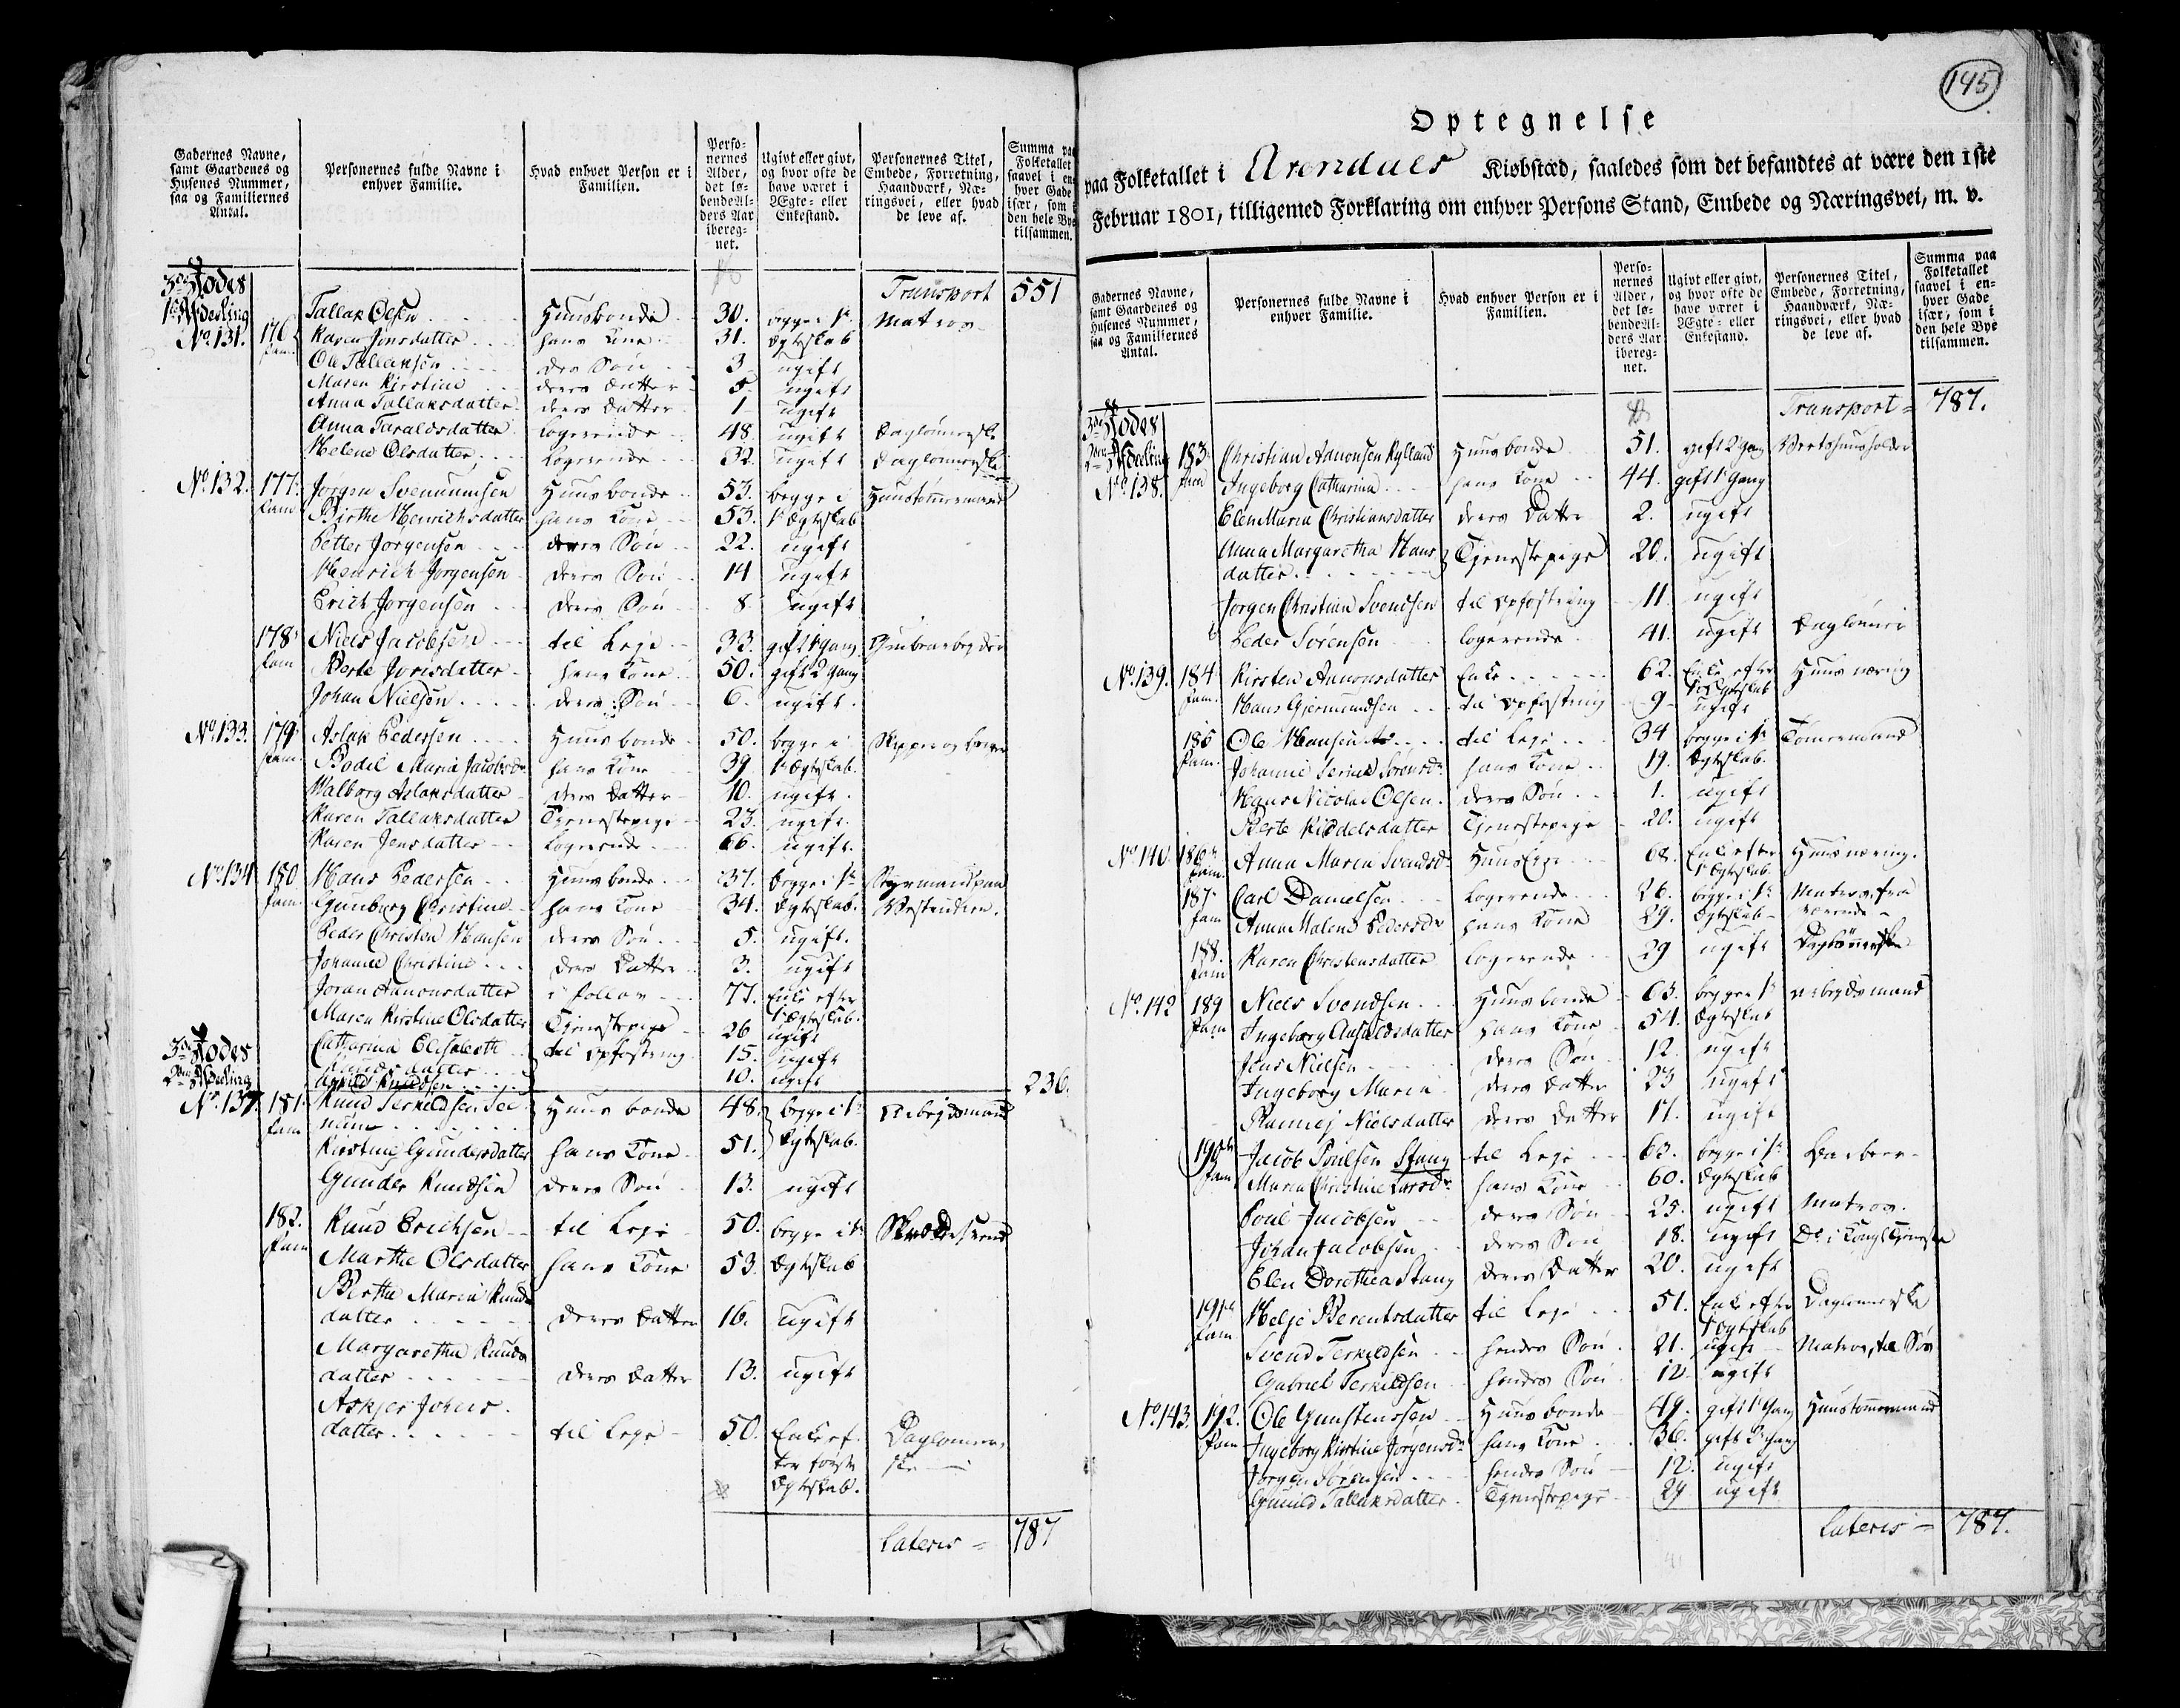 Gadernes Navne, samt Gaardenes og Husenes Nummer, saa og Familiernes Antal.
Personernes fulde Navne i enhver Familie.
Hvad enhver Person er i Familien.
Personernes Alder, det løbende Alders Aar iberegnet.
Ugivt eller givt, og hvor ofte de have været i Ægte- eller Enkestand.
Personernes Titel, Embede, Forretning, Haandværk, Næringsvei, eller hvad de leve af.
Summa paa Folketallet saavel i enhver Gade især, som i den hele Bye tilsammen.
3de Rodes 1te Afdeeling Transport 551
No. 131. 176 fam. Tallak Olsen Huusbonde 30. begge i 1te Matros
Karen Jonsdatter hans Kone 31. Ægteskab
Ole Tallaksen deres Søn 3 ugift
Maren Kirstine deres Datter 5 ugift
Anna Tallaksdatter deres Datter 1 ugift
Anna Taraldsdatter Logerende 48 ugift Daglønnerske
Helene Olsdatter Logerende 32 ugift Daglønnerske
No. 132. 177. fam Jørgen Svenumsen Huusbonde 53. begge i Huustømmermand
Birthe Henrichsdatter hans Kone 53. 1te Ægteskab
Petter Jørgensen deres Søn 22. ugift
Henrich Jørgensen deres Søn 14 ugift
Erich Jørgensen deres Søn 8 ugift
178 fam Niels Jacobsen til Leje 33. gift 1te Gang
Berte Jorisdatter hans Kone 50. gift 2 Gang
Johan Nielsen deres Søn 6. ugift.
No. 133. 179 fam. Aslak Pedersen Huusbonde 50. begge i
Bodil Maria Jacobsdr hans Kone 39 1te Ægteskab.
Walborg Aslaksdatter deres Datter 10. ugift.
Karen Tallaksdatter Tjenestepige 23. ugift.
Karen Jensdatter Logerende 66. ugift.
No. 134 180 fam. Hans Pedersen Huusbonde 37. begge i 1te Styrmand paa
Gunborg Christine hans Kone 34. Ægteskab. Westindien.
Peder Christen Hansen deres Søn 5. ugift.
Johanne Christine deres Datter 3. ugift
Joran Aanonsdatter i follav 77. Enke efter 1te Ægteskab.
Maren Kirstine Olsdatter Tjenestepige 26 ugift
Catharina Elisabeth Knudsdatter til Opfostring 15. ugift
Knudsen 10. ugift 236.
3de Rodes 2den Afdeeling
No. 137. 181. fam Knud Terkildsen Huusbonde 48. begge i 1te Arbejdsmand
Kirstine Gundersdatter hans Kone 51. Ægteskab.
Gunder Knudsen deres Søn 13. ugift
182. fam Knud Erichsen til Leje 50. begge i 1te
Marthe Olsdatter hans Kone 53. Ægteskab
Berthe Maria Knuds
datter deres Datter 16. ugift
Margaretha Knuds
datter deres Datter 13. ugift
Askjer Johns
datter til Leje 50. Enke ef- Daglønner-
ter første ske
Ægteskab.
Lateris = 787
145
Optegnelse
paa Folketallet i Arendals Kiøbstæd, saaledes som det befandtes at være den 1ste
Februar 1801, tilligemed Forklaring om enhver Persons Stand, Embede og Næringsvei, m. v.
Gadernes Navne, samt Gaardenes og Husenes Nummer, saa og Familiernes Antal.
Personernes fulde Navne i enhver Familie.
Hvad enhver Person er i Familien.
Personernes Alder, det løbende Alders Aar iberegnet.
Ugivt eller givt, og hvor ofte de have været i Ægte- eller Enkestand.
Personernes Titel, Embede, Forretning, Haandværk, Næringsvei, eller hvad de leve af.
Summa paa Folketallet saavel i enhver Gade især, som i den hele Bye tilsammen.
3de Rodes 2den Afdeeling Transport = 787.
No. 138. 183. fam Christian Aanonsen Kylland Huusbonde 51. gift 2 Gang Wertshuusholder
Ingeborg Catharina hans Kone 44. gift 1te Gang
Elen Maria Christiansdatter deres Datter 2. ugift
Anna Margaretha Hans
datter Tjenestepige 20. ugift
Jørgen Christian Svendsen til Opfostring 11. ugift
Peder Sørensen logerende 41. ugift Daglønner
No. 139. 184 fam. Kirsten Aanonsdatter Enke 62. Enke efter 1te Ægteskab Huus næring
Hans Gjermundsen til Opfostring 9 ugift
185 fam. Ole Hansen til Leje 34 begge i 1te Tømremand
Johanne Serine Sørensdr hans Kone 19. Ægteskab.
Hans Nicolai Olsen deres Søn 1. ugift
Berte Kiddelsdatter Tjenestepige 20. ugift
No. 140. 186 fam. Anna Maria Svendsdr 68. Enke efter 1te Ægteskab. Huus næring.
187 fam Carl Danielsen Logerende 26. begge i 1te Matros, fra
Anna Malene Pedersdr hans Kone 29. Ægteskab værende
188. fam Karen Christensdatter logerende 29 ugift Daglønnerske
No. 142 189 fam Niels Svendsen Huusbonde 63. begge i 1te Arbejdsmand
Ingeborg Aasuldsdatter hans Kone 54. Ægteskab
Jens Nielsen deres Søn 12. ugift
Ingeborg Maria deres Datter 23 ugift
Rannej Nielsdatter deres Datter 17. ugift
190 fam Jacob Poulsen Stang til Leje 63. begge i 1te Barbeer
Maria Christine Larsdr hans Kone 60. Ægteskab
Poul Jacobsen deres Søn 25. ugift Matros.
Johan Jacobsen deres Søn 18. ugift Do i Kongl Tjeneste
Elen Dorothea Stang deres Datter 20. ugift
191 fam Helje Berentsdatter til Leje 51. Enke efter 1te Ægteskab Daglønnerske
Svend Terkildsen hendes Søn 21. ugift Matros, til Søs
Gabriel Terkildsen hendes Søn 12 ugift
No. 143. 192. fam Ole Gunstensen Huusbonde 49. gift 1te Gang Huustømmermand
Ingeborg Kirstine Jørgensdr hans Kone 36. gift 2 Gang
Jørgen Sørensen hendes Søn 12. ugift
Gunild Tallaksdatter Tjenestepige 29 ugift
Lateris = 787.